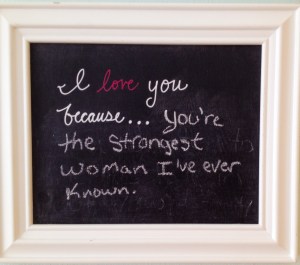 I love you
because... You're
the strongest
woman I've ever
known.